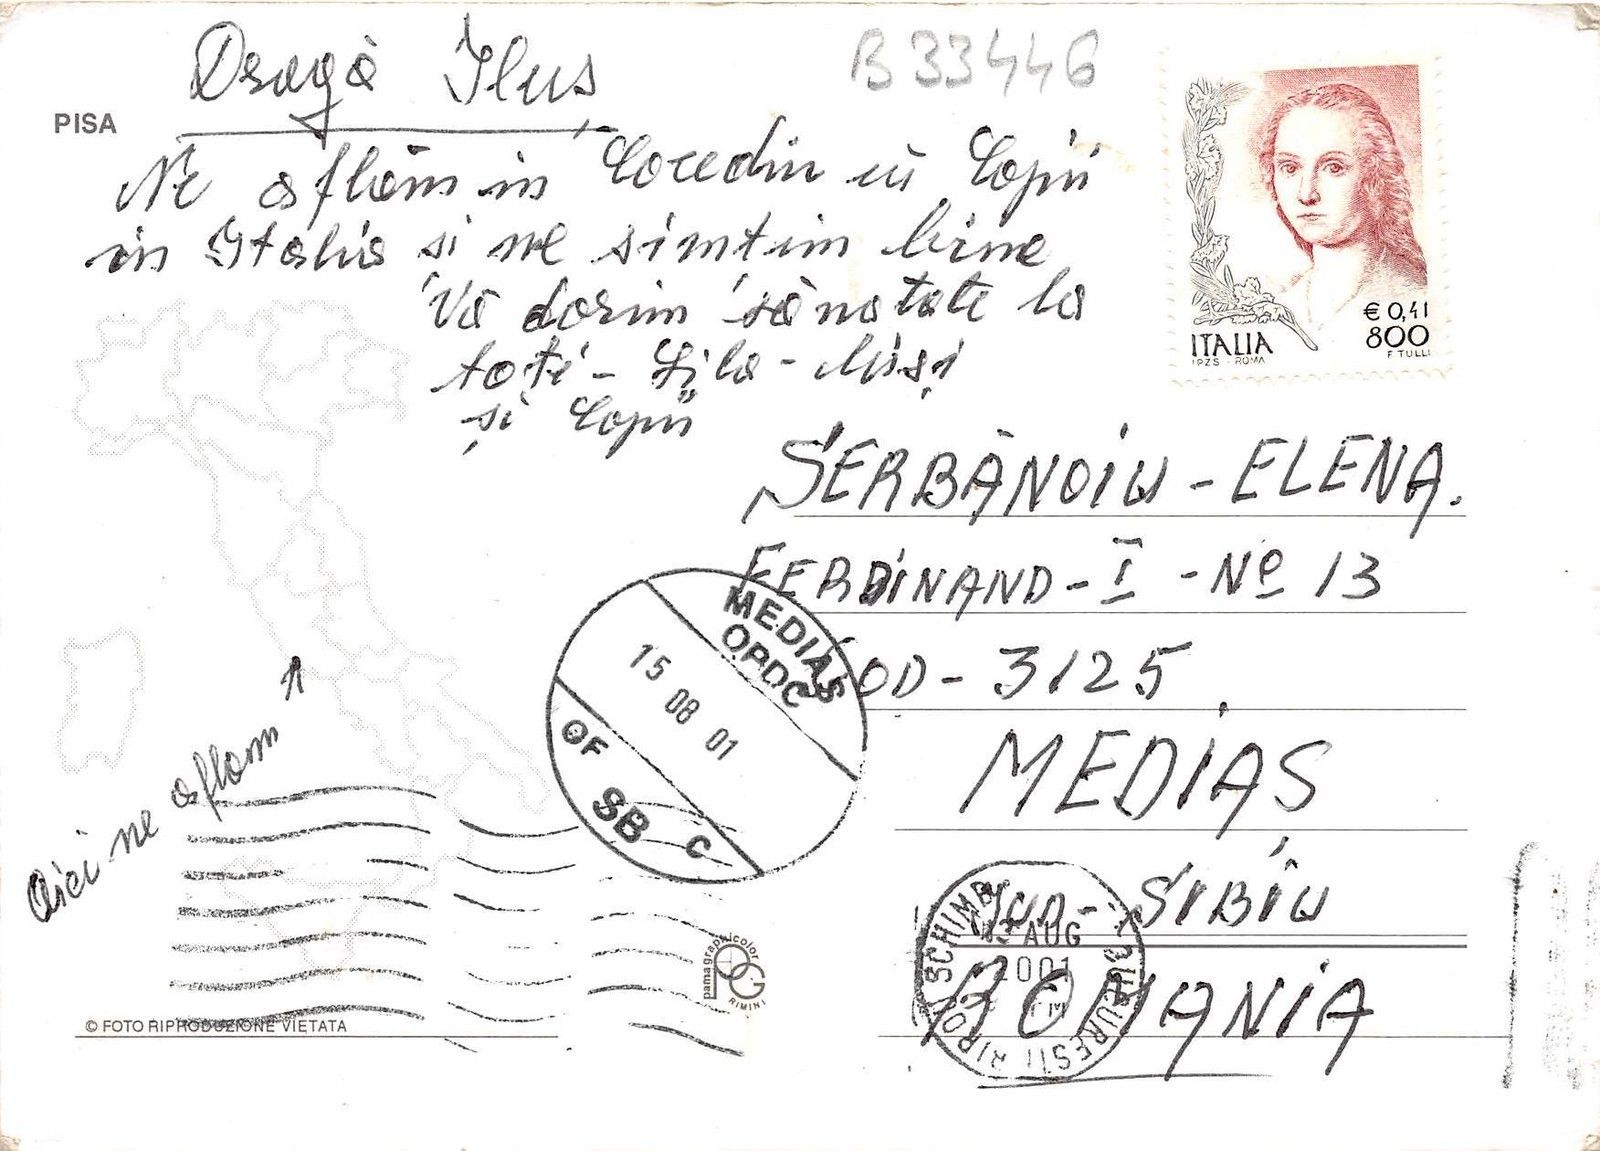 B 33446
PISA
Dragă Iluș
Ne aflăm in Concediu cu Copii
in Italia si ne simtim bine
Vă dorim sănatate la
toți - Lila - Misi
și Copii
ITALIA
IPZS - ROMA
€ 0,41
800
F. TULLI
ȘERBĂNOIU - ELENA.
FERDINAND - I - No 13
COD - 3125
MEDIAȘ
Jud - SIBIU
ROMANIA
MEDIAS
OPDC
15 08 01
OF SB C
Aici ne aflam
AUG
2001
BUCURESTI
SCHIMB
pamagraphicolor
PG
RIMINI
© FOTO RIPRODUZIONE VIETATA